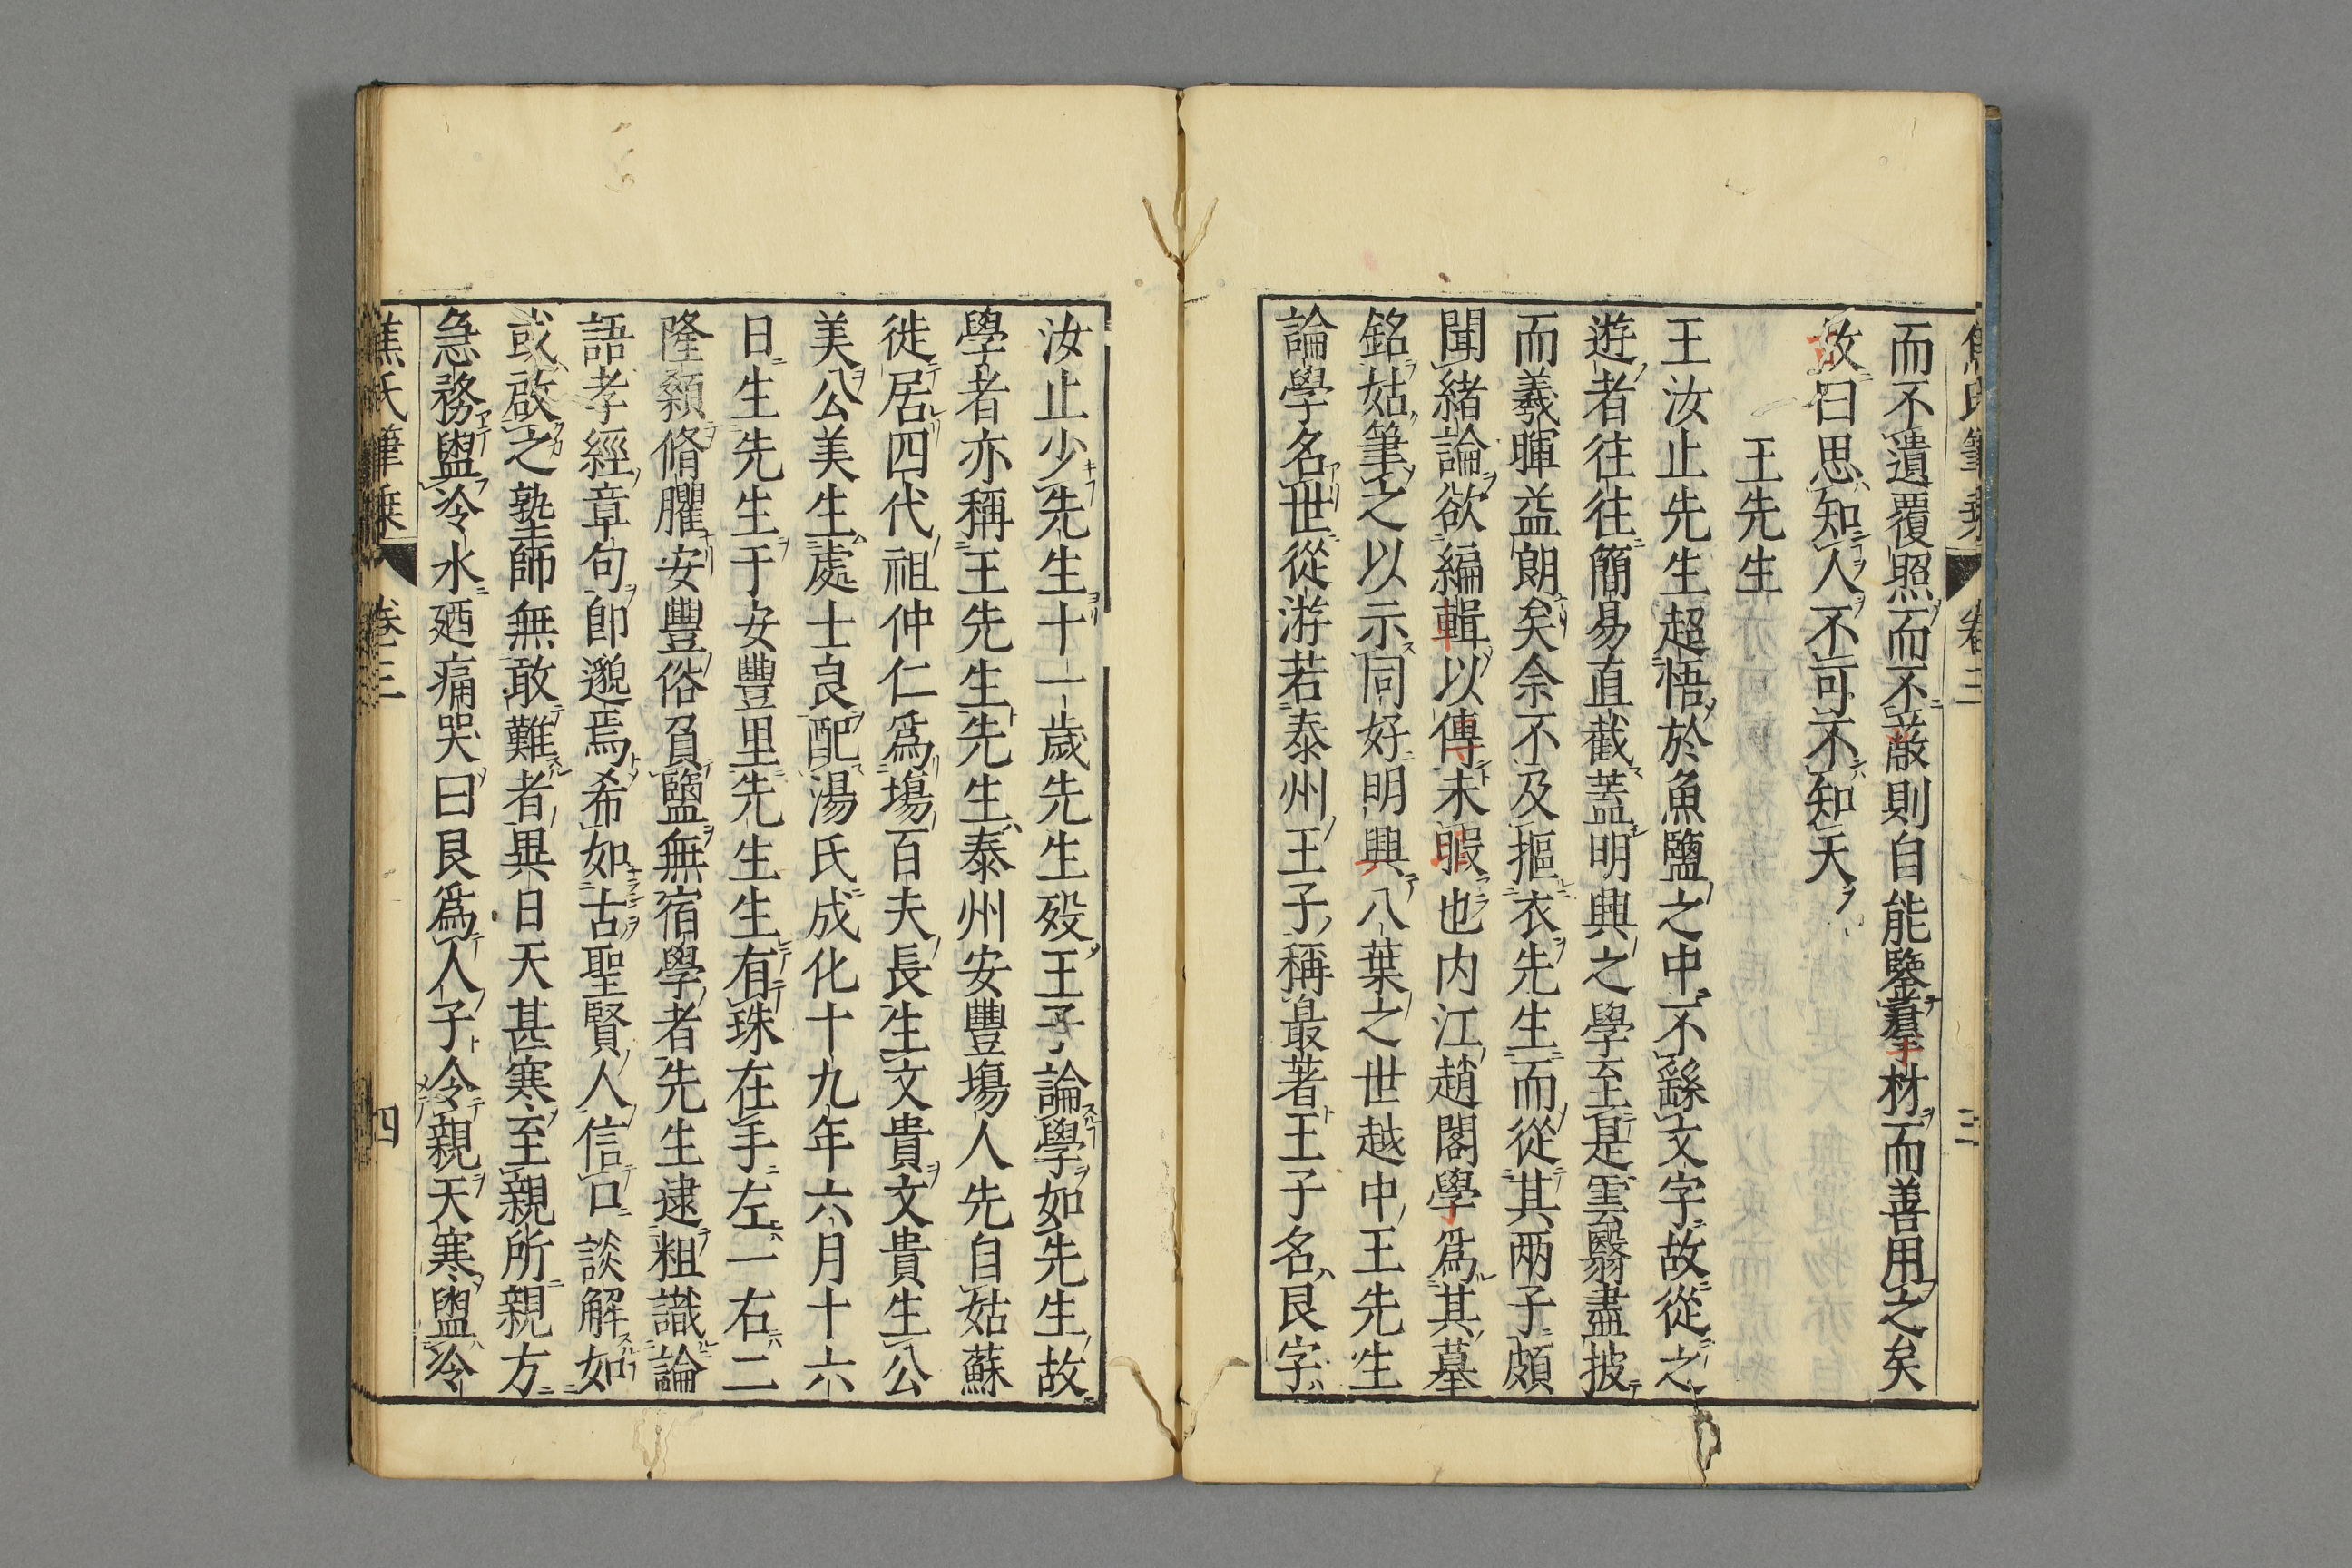 焦氏筆乗 卷三 三
而不遺覆照而不蔽則自能鑒羣材而善用之矣
故曰思知人不可不知天
王先生
王汝止先生超悟於魚鹽之中不繇文字故從之
遊者往往簡易直截蓋明興之學至是雲翳盡披
而羲暉益朗矣余不及摳衣先生而從其两子頗
聞緒論欲編輯以傳未暇也内江趙閣學爲其墓
銘姑筆之以示同好明興八葉之世越中王先生
論學名世從游若泰州王子稱最著王子名艮字
汝止少先生十一歲先生殁王子論學如先生故
學者亦稱王先生先生泰州安豐塲人先自姑蘇
徙居四代祖仲仁爲塲百夫長生文貴文貴生公
美公美生處士良配湯氏成化十九年六月十六
日生先生于安豐里先生生有珠在手左一右二
隆顙脩臞安豐俗負鹽無宿學者先生逮粗識論
語孝經章句即邈焉希如古聖賢人信口談解如
或啟之塾師無敢難者異日天甚寒至親所親方
急務盥冷水廼痛哭曰艮爲人子令親天寒盥冷
焦氏筆乗 卷三 四